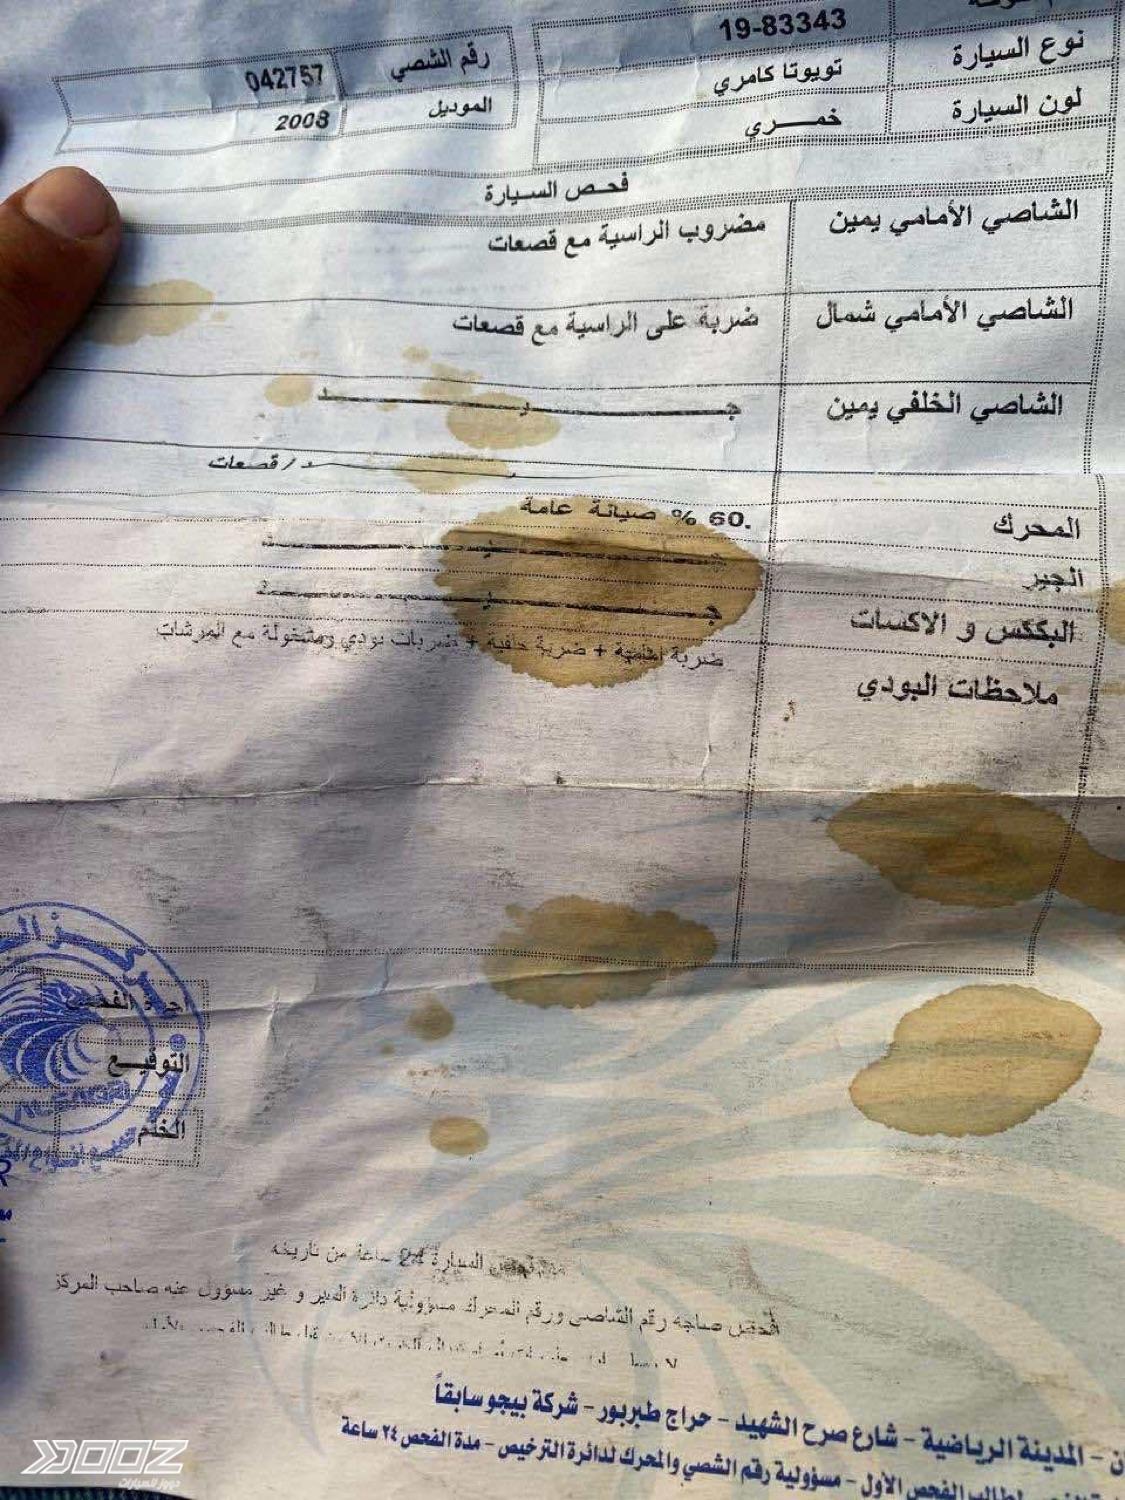 19-83343
نوع السيارة تويوتا كامري رقم الشصي 042757
لون السيارة خمـــــري الموديل 2008
فحص السيارة
الشاصي الأمامي يمين مضروب الراسية مع قصعات
الشاصي الأمامي شمال ضربة على الراسية مع قصعات
الشاصي الخلفي يمين جـــــــيـــــــد
ـــــد / قصعات
المحرك 60% صيانة عامة
الجير جـــــــيـــــــد
البكس و الاكسات جـــــــيـــــــد
ملاحظات البودي ضربة امامية + ضربة خلفية + ضربات بودي ومشغولة مع المرشات
أجرة الفحص
التوقيـــع
الختم
السيارة 24 ساعة من تاريخه
رقم الشاصي ورقم المحرك مسؤولية دائرة السير و غير مسؤول عنه صاحب المركز
المدينة الرياضية - شارع صرح الشهيد - حراج طبربور - شركة بيجو سابقاً
لطالب الفحص الأول - مسؤولية رقم الشصي والمحرك لدائرة الترخيص - مدة الفحص ٢٤ ساعة
DOOZ
دووز للسيارات